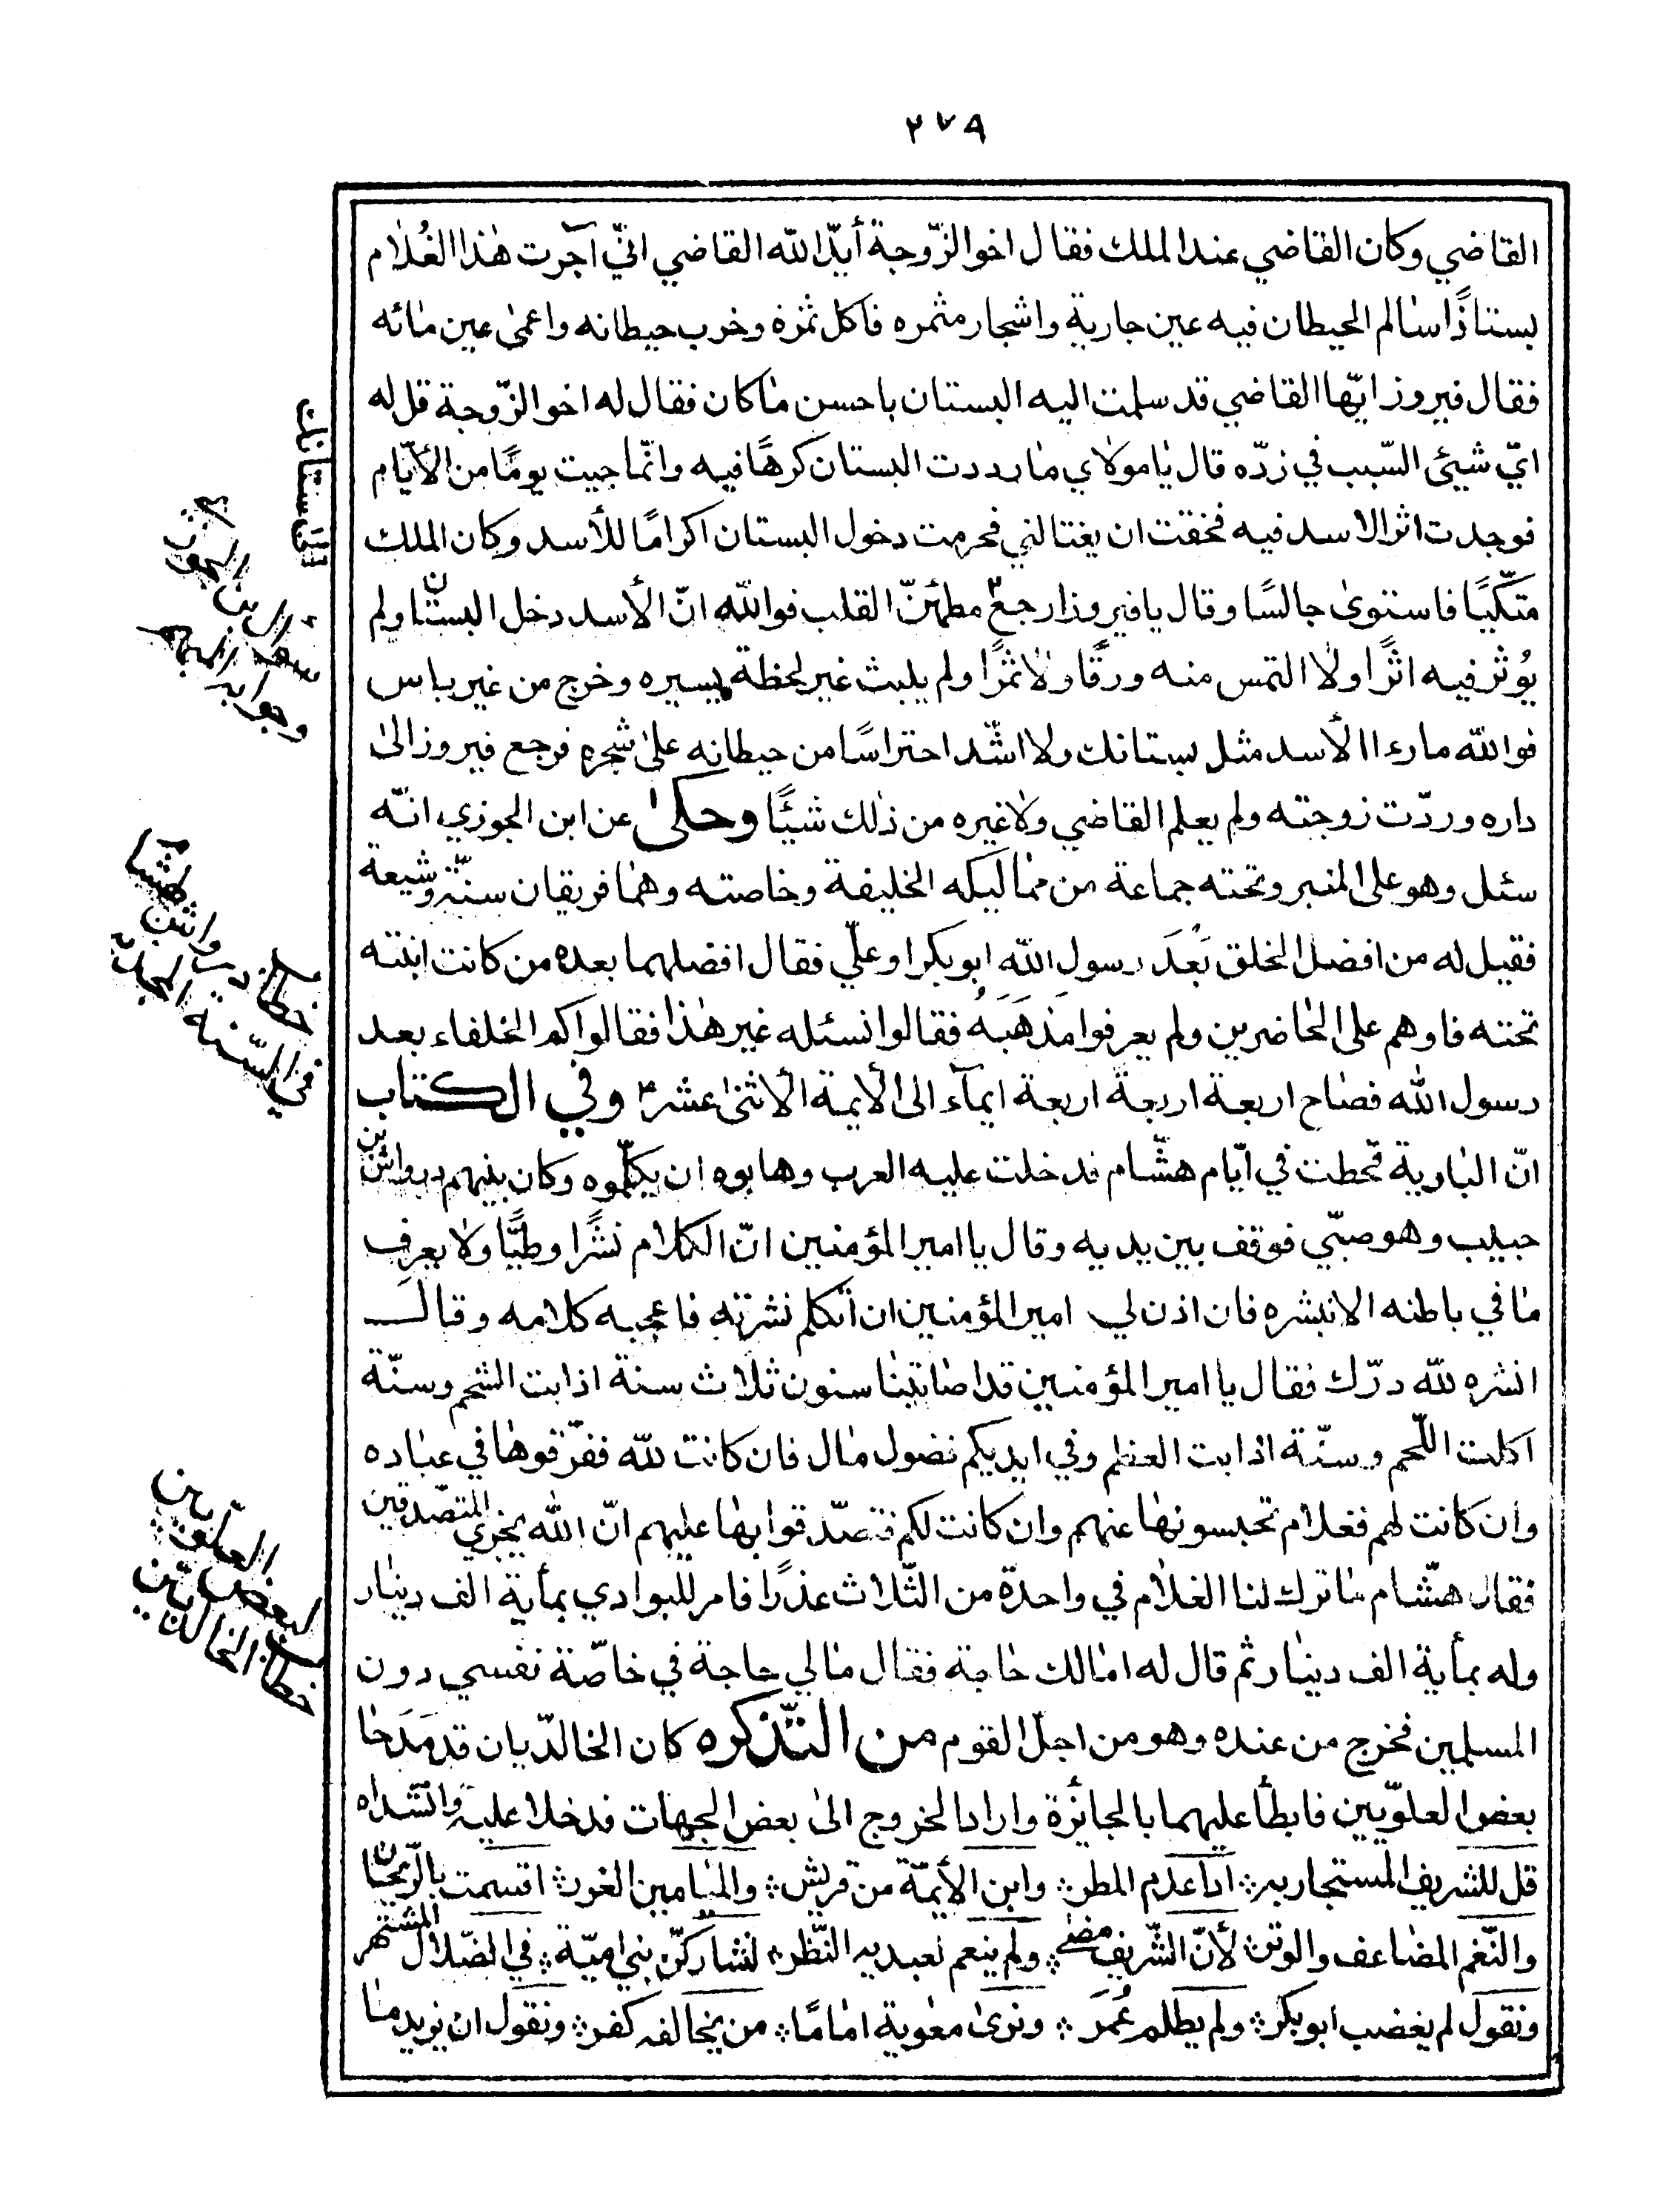 ٢٧٩
القاضي وكان القاضي عند الملك فقال اخو الزّوجة أيدّ الله القاضي انّي آجرت هٰذا الغُلام
بستانًا سالم الحيطان فيه عين جارية واشجار مثمره فاكل ثمره وخرب حيطانه واعمىٰ عين مائه
فقال فيروز ايّها القاضي قد سلمت اليه البستان باحسن مٰا كان فقال له اخو الزّوجة قل له
ايّ شيئ السّبب في ردّه قال يٰا مولاي مٰا رددت البستان كرهًا فيه وانّما جيت يومًا من الأيّام
فوجدت اثر الاسد فيه فخفت ان يغتالني فحرمت دخول البستان اكرامًا للأسد وكان الملك
متكّيًا فاستوىٰ جالسًا وقال يا فيروز ارجع مطمئنّ القلب فوالله انّ الأسد دخل البستان ولم
يُوثر فيه اثرًا ولا التمس منه ورقًا ولا ثمرًا ولم يلبث غير لحظة يسيره وخرج من غير باس
فوالله مارءا الأسد مثل بستانك ولا اشّد احتراسًا من حيطانه علىٰ شجره فرجع فيروز الىٰ
داره وردّت زوجته ولم يعلم القاضي ولا غيره من ذٰلك شيئًا وحكىٰ عن ابن الجوزي انّه
سئل وهو على المنبر وتحته جماعة من مماليكه الخليفة وخاصته وهما فريقان سنّة وشيعة
فقيل له من افضل الخلق بَعْدَ رسول الله ابو بكر او علّي فقال افضلهما بعده من كانت ابنته
تحته فاوهم على الحٰاضرين ولم يعرفوا مَذهَبَهُ فقالوا نسئله غير هٰذا فقالوا كم الخلفاء بعد
رسول الله فصٰاح اربعة اربعة اربعة ايمآء الى الأيمة الاثنىٰ عشر وفي الكتاب
انّ البٰادية قحطت في ايّام هشّام فدخلت عليه العرب وهابوه ان يكلّموه وكان بينهم درواش بن
حبيب وهو صبّي فوقف بين يديه وقال يا امير المؤمنين انّ الكلام نشرًا وطيًّا ولا يعرف
مٰا في باطنه الا بنشره فان اذن لي امير المؤمنين ان اتكلم نشرته فاعجبه كلامه وقال
انشره لله درّك فقال يا امير المؤمنين قد اصٰابتنٰا سنون ثلاث سنة اذابت الشحم وسنّة
اكلت اللّحم وسنّة اذابت العظم وفي ايديكم فضول مٰال فان كانت لله ففرّقوهٰا في عبٰاده
وان كانت لهم فعلام تحبسونهٰا عنهم وان كانت لكم فتصدّقوا بهٰا عليهم انّ الله يجزي المتصّدقين
فقال هشّام مٰا ترك لنا الغلٰام في واحدة من الثّلاث عذرًا فامر للبوادي بمأية الف دينٰار
وله بمأية الف دينٰار ثم قال له امٰا لك حٰاجة فقال مٰا لي حاجة في خاصّة نفسي دون
المسلمين فخرج من عنده وهو من اجلّ القوم من التّذكره كان الخالدّيان قد مَدَحٰا
بعض العلوّيين فابطأ عليهما بالجائزة وارادا الخروج الىٰ بعض الجهات فدخلا عليه وانشداه
قل للشريف المستجار به اذا عدم المطر وابن الأيمّة من قريش والميٰامين الغرر اقسمت بالرّيحٰان
والنّغم المضٰاعف والوتر لأنّ الشّريف مضىٰ ولم ينعم لعبديه النّظر لنشاركنّ بني اميّة في الضّلال المشتهر
ونقول لم يغضب ابو بكر ولم يظلم عُمَر ونرىٰ معٰوية امٰامًا من يخالفه كفر ونقول ان يزيد مٰا
سؤال ابن الجوزي
وجوابه المبهم
خطاب درواش هشام
في السّنة المجدبة
خطاب الخالديّين
لبعض العلويّين